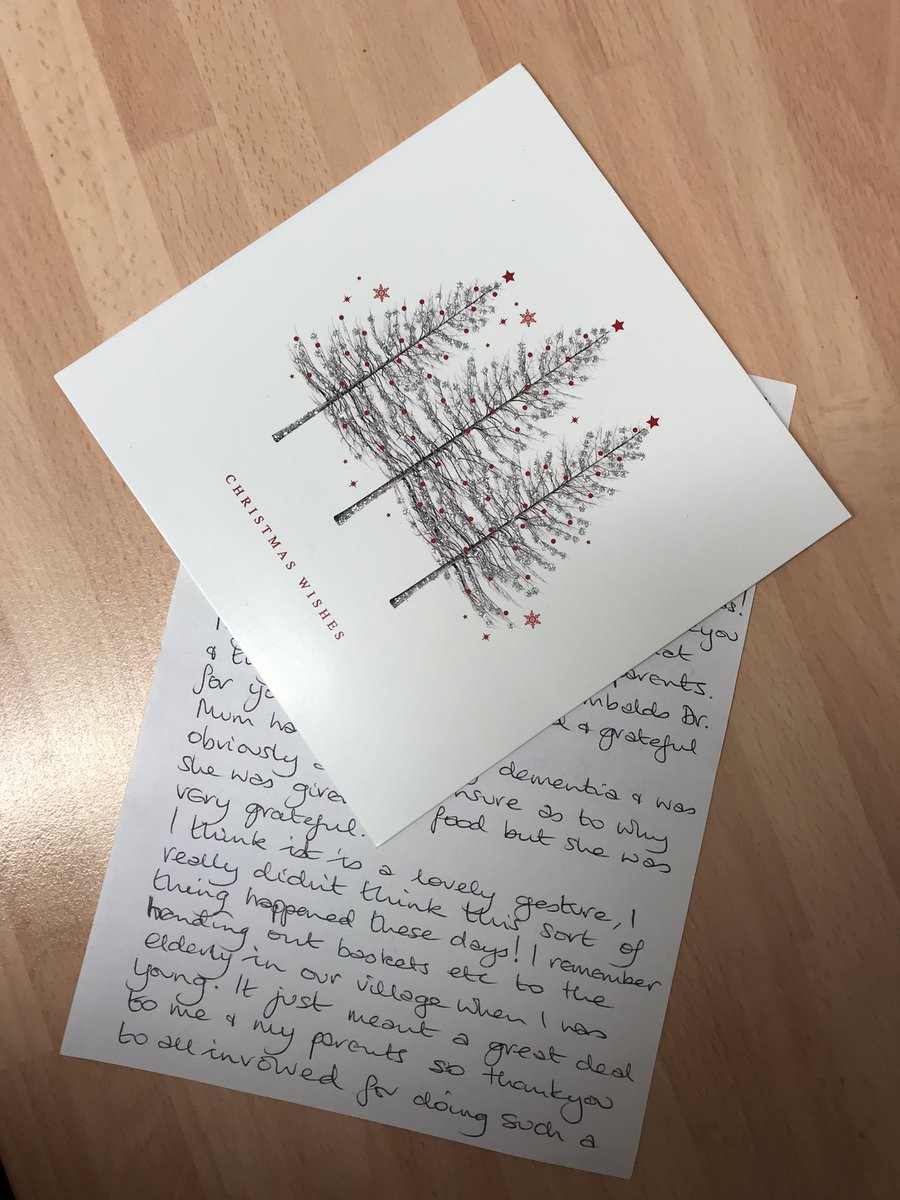 CHRISTMAS WISHES
s!
you
&
parents.
for yo mbalds Dr.
Mum ha & grateful
obviously dementia & was
she was give nsure as to why
very grateful. food but she was
I think it is a lovely gesture, I
really didn't think this sort of
thing happened these days! I remember
handing out baskets etc to the
elderly in our village when I was
young. It just meant a great deal
to me & my parents so thankyou
to all involved for doing such a